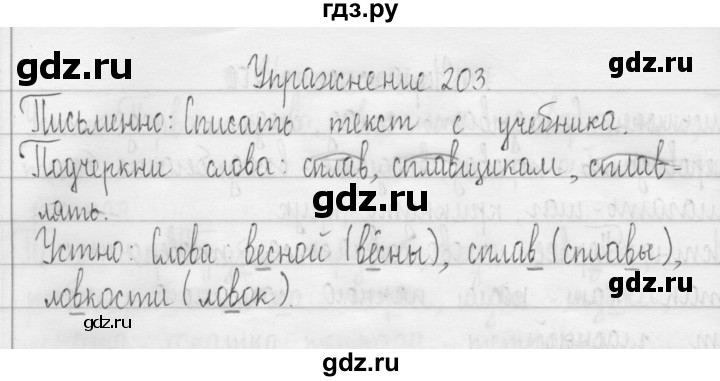 гдз.ру
gdz.ru gdz.ru
Упражнение 203.
Письменно: Списать текст с учебника.
Подчеркни слова сплав, сплавщикам, сплав-
gdz.ru
лять.
Устно: Слова весной (вёсны), сплав (сплавы),
ловкости (ловок).
gdz.ru gdz.ru
gdz.ru